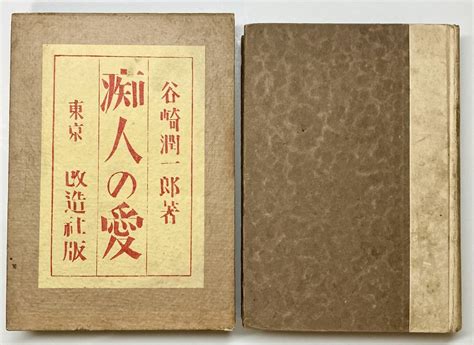 谷崎潤一郎著
痴人の愛
東京 改造社版